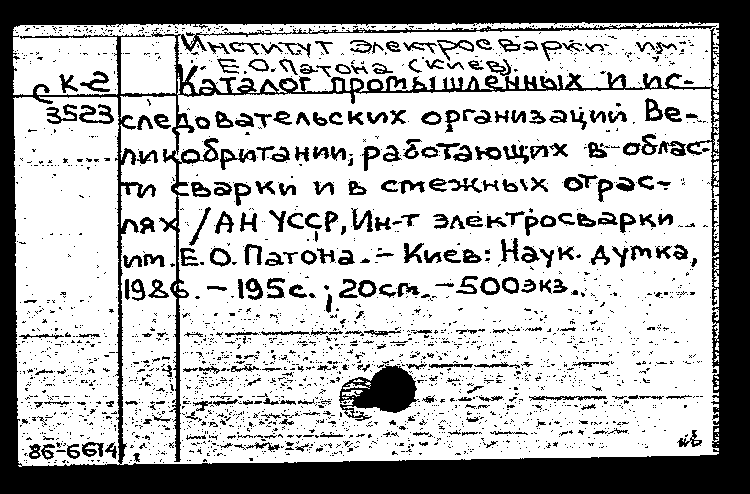 Институт электросварки им.
Е.О.Патона (Киев).
с К-2
3523
Каталог промышленных и ис-
следовательских организаций Ве-
ликобритании, работающих в облас-
ти сварки и в смежных отрас-
лях / АН УССР, Ин-т электросварки
им. Е.О.Патона. - Киев: Наук. думка,
1986. - 195с. ; 20см. - 500экз.
86-6614